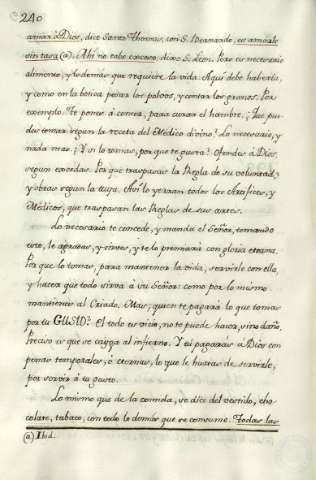 240
amar à Dios, dice Santo Thomas, con S. Bernardo, es amarle
sin tasa (a). Ahí no cabe exceso, dice S. Leon. Pero es necesario
alimento, y lo demas que requiere la vida. Aqui debe haberla,
y como en la botica pesar los polvos, y contar los granos. Por
exemplo. Te pones à comer, para curar el hambre. ¿Que pue-
des tomar segun la receta del Médico divino? Lo necesario, y
nada mas. ¿Y si lo tomas, por que te gusta? Ofendes à Dios,
segun excedas. Por que traspasas la Regla de su voluntad,
y obras segun la tuya. Así lo yerran todos los Artifices, y
Médicos, que traspasan las Reglas de sus artes.
Lo necesario te concede, y manda el Señor, tomando
esto, le agradas, y sirves, y te lo premiará con gloria eterna.
Por que lo tomas, para mantener la vida, servirle con ello,
y hacer que todo sirva à su Señor: como por lo mismo
mantiene al Criado. Mas, quien te pagará lo que tomas
por tu GUSTO? El todo es vicio, no te puede hacer, sino daño.
Preciso es que se cayga al infierno. Y tu pagarás à Dios con
penas temporales, ó eternas, lo que le hurtas de servirle,
por servir à tu gusto.
Lo mismo que de la comida, se dice del vestido, cho-
colate, tabaco, con todo lo demás que se consume. Todas las
(a) Ibid.